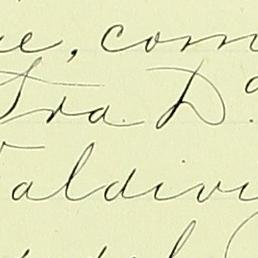 ue, com
Sra. Dª
Valdivi